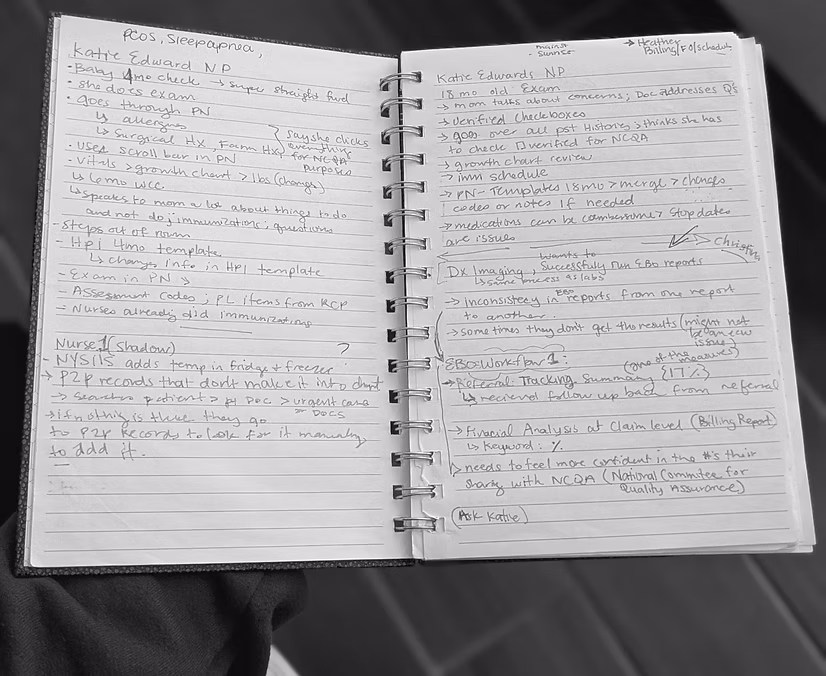 PCOS, Sleep apnea,
Katie Edward NP
• Baby 4mo check → super straight fwd
• she does exam
• goes through PN
↳ allergies
↳ Surgical Hx, Fam Hx,
says she clicks
everything
for NCQA
purposes
• uses scroll bar in PN
• vitals > growth chart > lbs (change)
↳ 6mo wcc
↳ speaks to mom a lot about things to do
and not do; immunizations; questions
- steps out of room
- HPI 4mo template
↳ changes info in HPI template
- Exam in PN
- Assessment codes; PL items from RCP
- Nurses already did immunizations
Nurse 1 (Shadow) ?
- NYSIIS adds temp in fridge + freezer
→ P2P records that don't make it into chart
→ Search patient > P1 Doc > urgent care
> DOCS
→ if nothing is there they go
to P2P Records to look for it manually
to add it.
→ Heather
Billing/FO/schedul
- Sunrise
Katie Edwards NP
18 mo old Exam
→ mom talks about concerns; Doc addresses Q's
→ verified checkboxes
→ goes over all past Histories; thinks she has
to check □ verified for NCQA
→ growth chart review
→ imm schedule
→ PN - Templates 18mo > merge > changes
codes or notes if needed
→ medications can be cumbersome > Stop dates
are issues
Christin
wants to
Dx Imaging, Successfully run EBO reports
↳ same process as labs
→ Inconsistecy in EBO reports from one report
to another.
→ sometimes they don't get the results (might not
be an ecw
issue)
EBO Workflow 1:
(one of the
measures)
→ Referral Tracking Summary {17%}
↳ recieved follow up back from referral
→ Finacial Analysis at Claim level (Billing Report)
↳ Keyword: %
→ needs to feel more confident in the #'s their
sharing with NCQA (National Commitee for
Quality Assurance)
(Ask Katie)